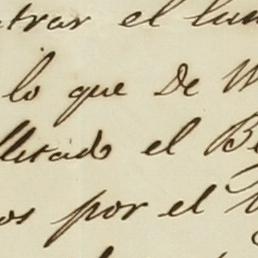 trar el lun
lo que De W
llitado el Be
os por el